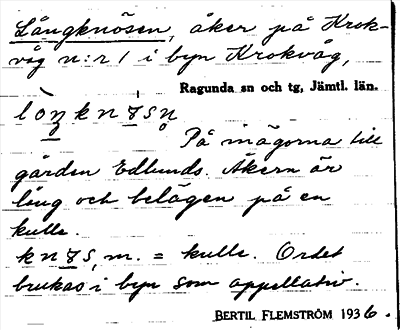 Långknösen, åker på Krok-
våg n:r 1 i byn Krokvåg,
Ragunda sn och tg, Jämtl. län.
På inägorna till
gården Edlunds. Åkern är
lång och belägen på en
kulle.
m. = kulle. Ordet
brukas i byn som appellativ.
BERTIL FLEMSTRÖM 1936.